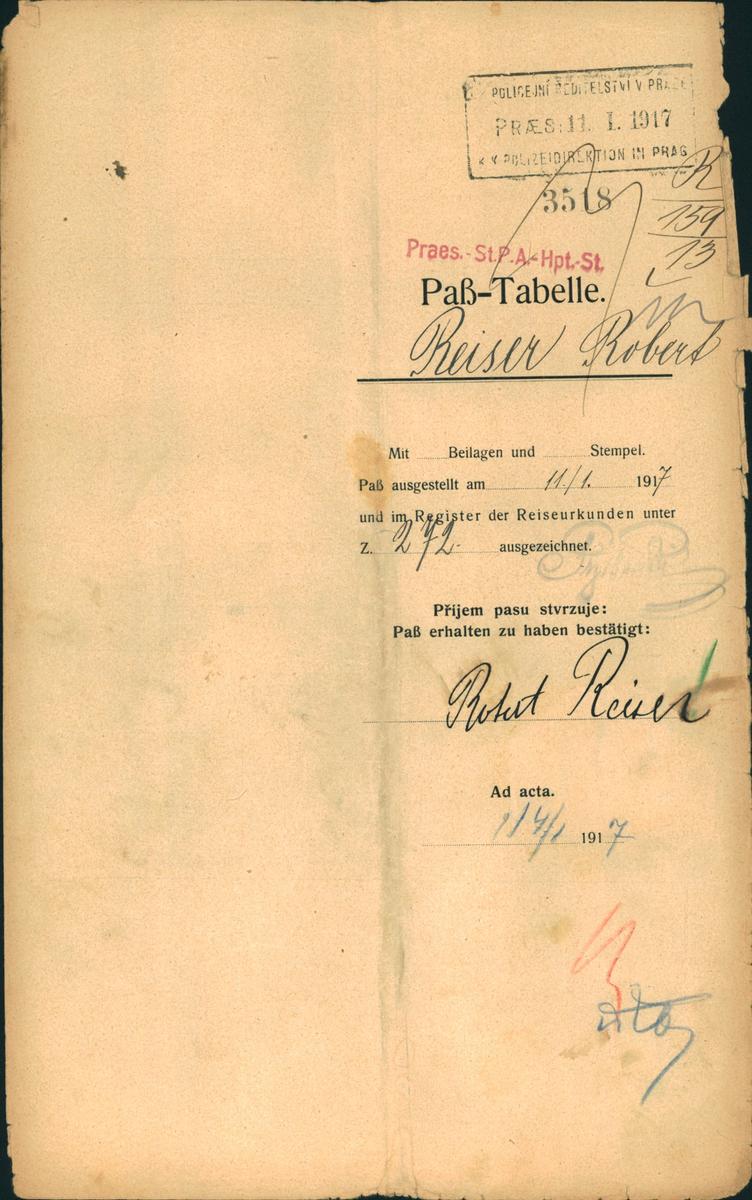 POLICEJNÍ ŘEDITELSTVÍ V PRAZE
PRÆS: 11. I. 1917
K. K. POLIZEIDIREKTION IN PRAG
3518
R
159
13
Praes.-St.P.A.-Hpt.-St.
Paß-Tabelle.
Reiser Robert
Mit Beilagen und Stempel.
Paß ausgestellt am 11./1. 1917
und im Register der Reiseurkunden unter
Z. 272. ausgezeichnet.
Příjem pasu stvrzuje:
Paß erhalten zu haben bestätigt:
Robert Reiser
Ad acta.
1917